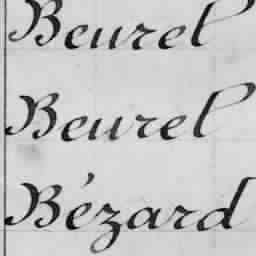 Beurel
Beurel
Bézard